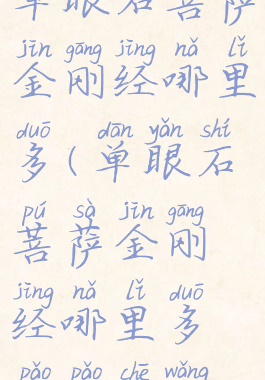 单眼石菩萨
jīn gāng jīng nǎ lǐ
金刚经哪里
duō dān yǎn shí
多(单眼石
pú sà jīn gāng
菩萨金刚
jīng nǎ lǐ duō
经哪里多
pǎo pǎo chē wǎng